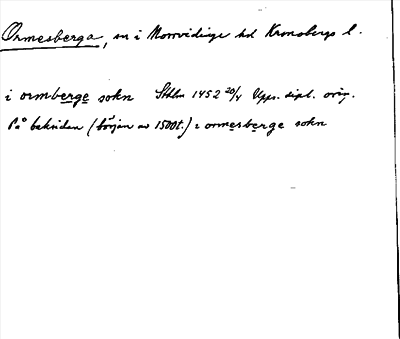 Ormesberga, sn i Norrvidinge hd Kronobergs l.
i ormberge sokn Sthlm 1452 20/4 Upps. dipl. orig.
På baksidan (början av 1500t.) i ormesberge sokn